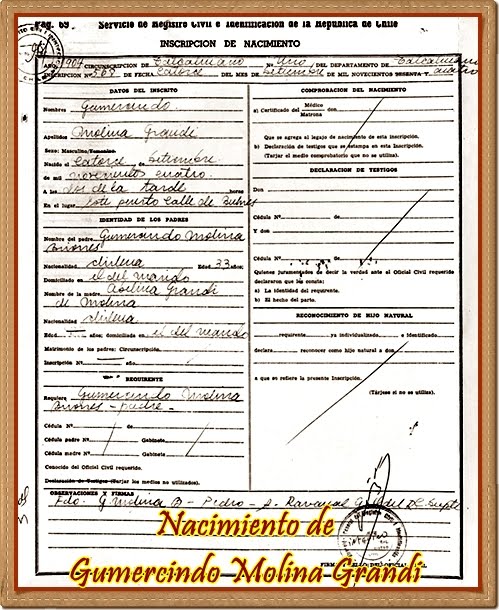 Pag. 69 Servicio de Registro Civil e Identificación de la República de Chile
INSCRIPCION DE NACIMIENTO
AÑO 1904 CIRCUNSCRIPCION DE Talcahuano N° Uno DEL DEPARTAMENTO DE Talcahuano
INSCRIPCION N° 568 DE FECHA Catorce DEL MES DE Setiembre DE MIL NOVECIENTOS SESENTA Y cuatro
DATOS DEL INSCRITO
Nombres Gumercindo
Apellidos Molina Grandi
Sexo: Masculino/Femenino.
Nacido el Catorce de Setiembre
de mil novecientos cuatro
A las dos de la tarde horas
En el lugar este puerto Calle de
IDENTIDAD DE LOS PADRES
Nombre del padre Gumercindo Molina
Briones
Nacionalidad chilena Edad 33 años;
Domiciliado en
Nombre de la madre Adelina Grandi
de Molina
Nacionalidad chilena
Edad años; domiciliada en el del marido
Matrimonio de los padres: Circunscripción.
Inscripción N° año
REQUIRENTE
Requiere Gumercindo Molina
Briones - padre -
Cédula N° de
Cédula padre N° Gabinete
Cédula madre N° Gabinete
Conocido del Oficial Civil requerido.
Declaración de Testigos (Tarjar los medios no utilizados).
COMPROBACION DEL NACIMIENTO
a) Certificado del Médico don
Matrona
Que se agrega al legajo de nacimiento de esta inscripción.
b) Declaración de testigos que se estampa en esta inscripción.
(Tarjar el medio comprobatorio que no se utiliza).
DECLARACION DE TESTIGOS
Don
Cédula N° de
Y don
Cédula N° de
Quienes juramentados de decir la verdad ante el Oficial Civil requerido
declararon que les consta:
a) La identidad del requirente.
b) El hecho del parto.
RECONOCIMIENTO DE HIJO NATURAL
requirente ya individualizado e identificado
declara reconocer como hijo natural a don
a que se refiere la presente Inscripción.
(Tárjese si no se utiliza).
OBSERVACIONES Y FIRMAS
Fdo. G. Molina B - Pedro - A. Ravanal
Nacimiento de
Gumercindo Molina Grandi